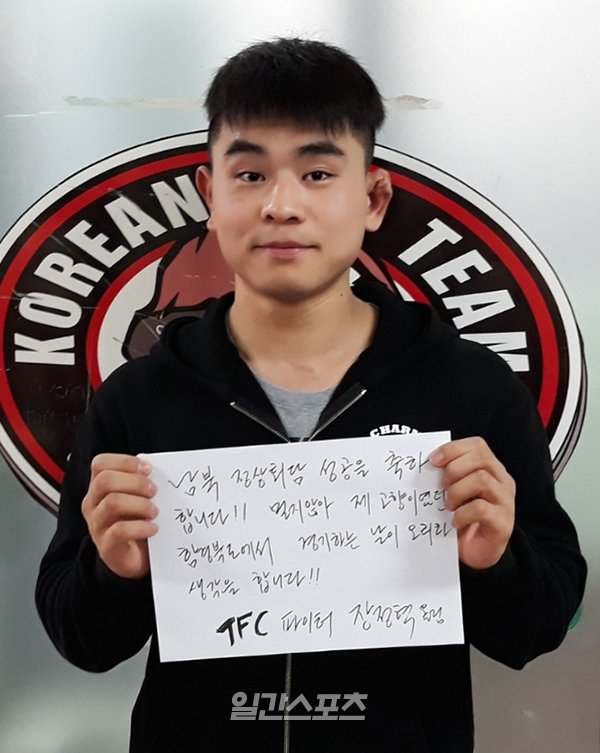 KOREAN
TEAM
CHARM
남북 정상회담 성공을 축하
합니다!! 멀지않아 제 고향이였던
함경북도에서 경기하는 날이 오리라
생각을 합니다!!
TFC 파이터 장정혁 올림
일간스포츠